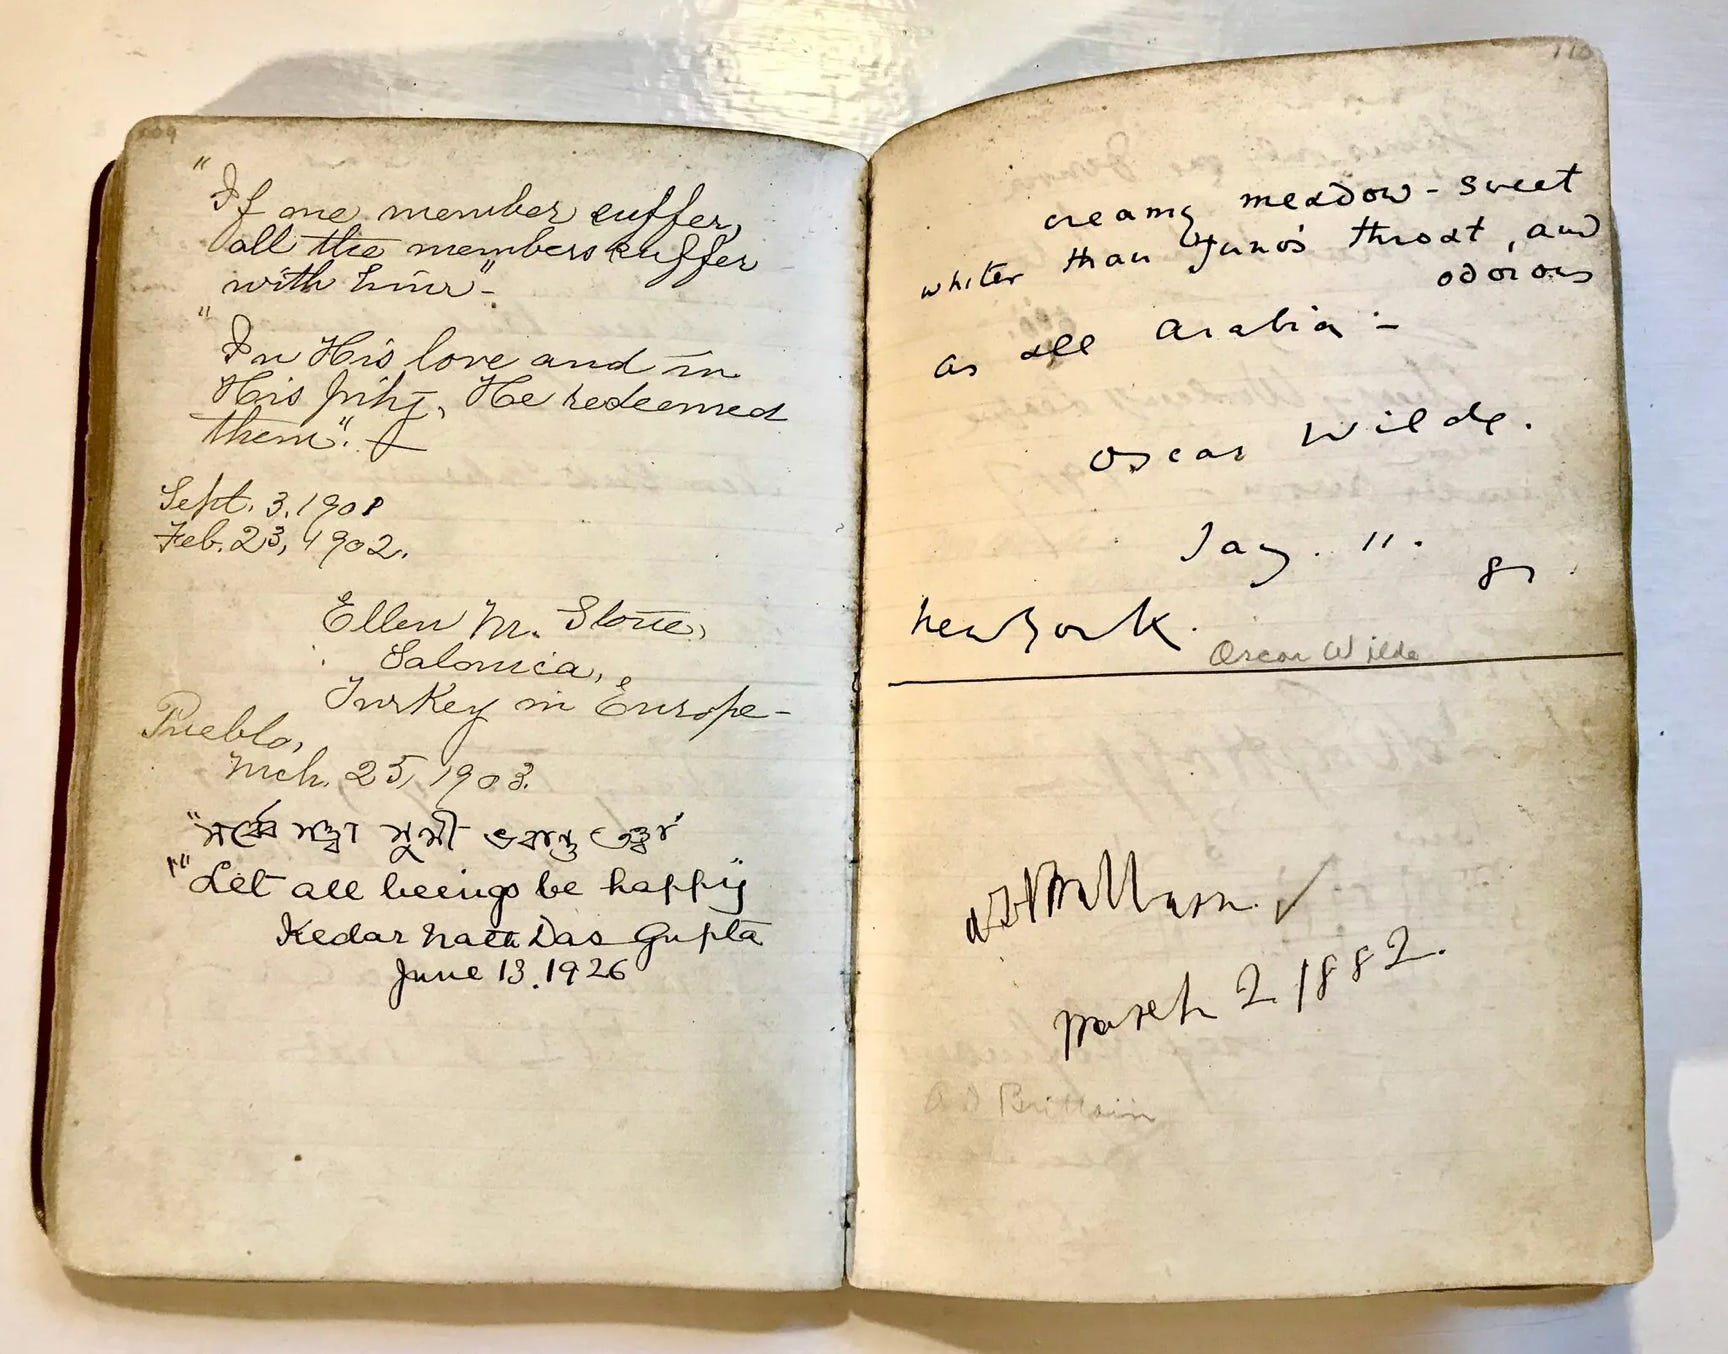 109
"If one member suffer,
all the members suffer
with him"-
"In His love and in
His pity, He redeemed
them".
Sept. 3, 1901
Feb. 23, 1902.
Ellen M. Stone,
Salonica,
Turkey in Europe-
Pueblo,
Mch. 25, 1903.
"Let all beings be happy"
Kedar Nath Das Gupta
June 13. 1926
110
creamy meadow-sweet
whiter than Juno's throat, and
odorous
as all Arabia -
Oscar Wilde.
Jay. 11. 82
New York.
Oscar Wilde
March 2 1882.
A D Brittain